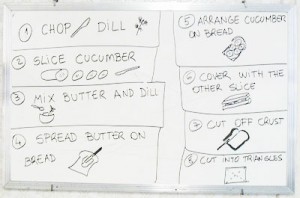 ① CHOP DILL
② SLICE CUCUMBER
③ MIX BUTTER AND DILL
④ SPREAD BUTTER ON
BREAD
⑤ ARRANGE CUCUMBER
ON BREAD
⑥ COVER WITH THE
OTHER SLICE
⑦ CUT OFF CRUST
⑧ CUT INTO TRIANGLES